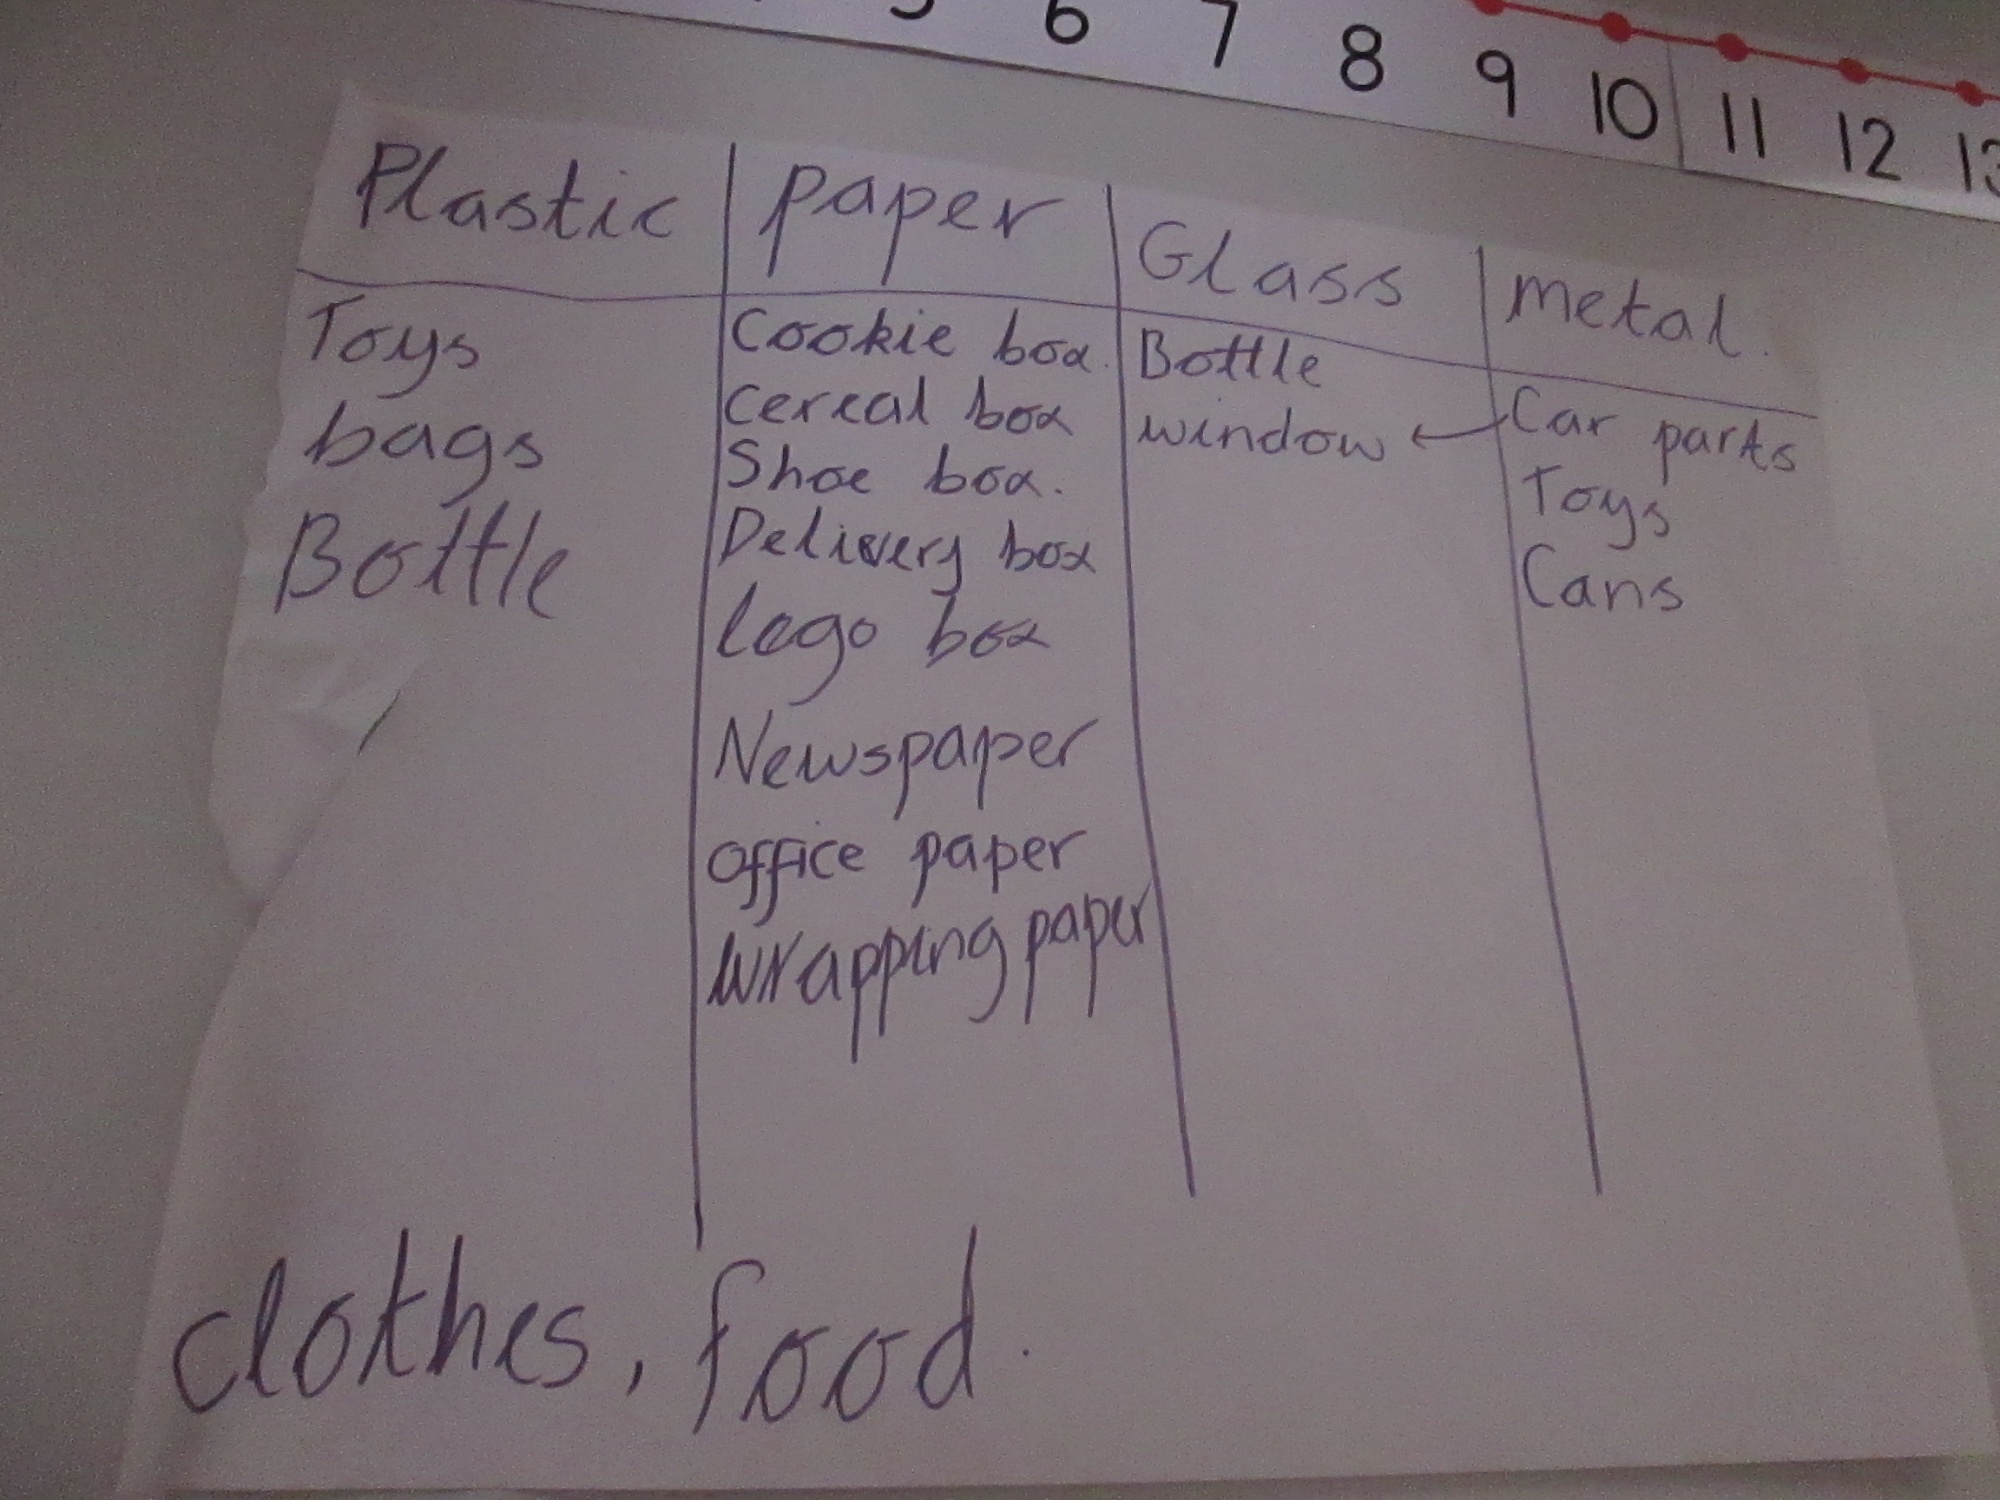 5 6 7 8 9 10 11 12 13
Plastic paper Glass metal.
Toys Cookie box. Bottle Car parts
bags Cereal box window Toys
Bottle Shoe box. Cans
Delivery box
Lego box
Newspaper
office paper
wrapping paper
clothes, food.